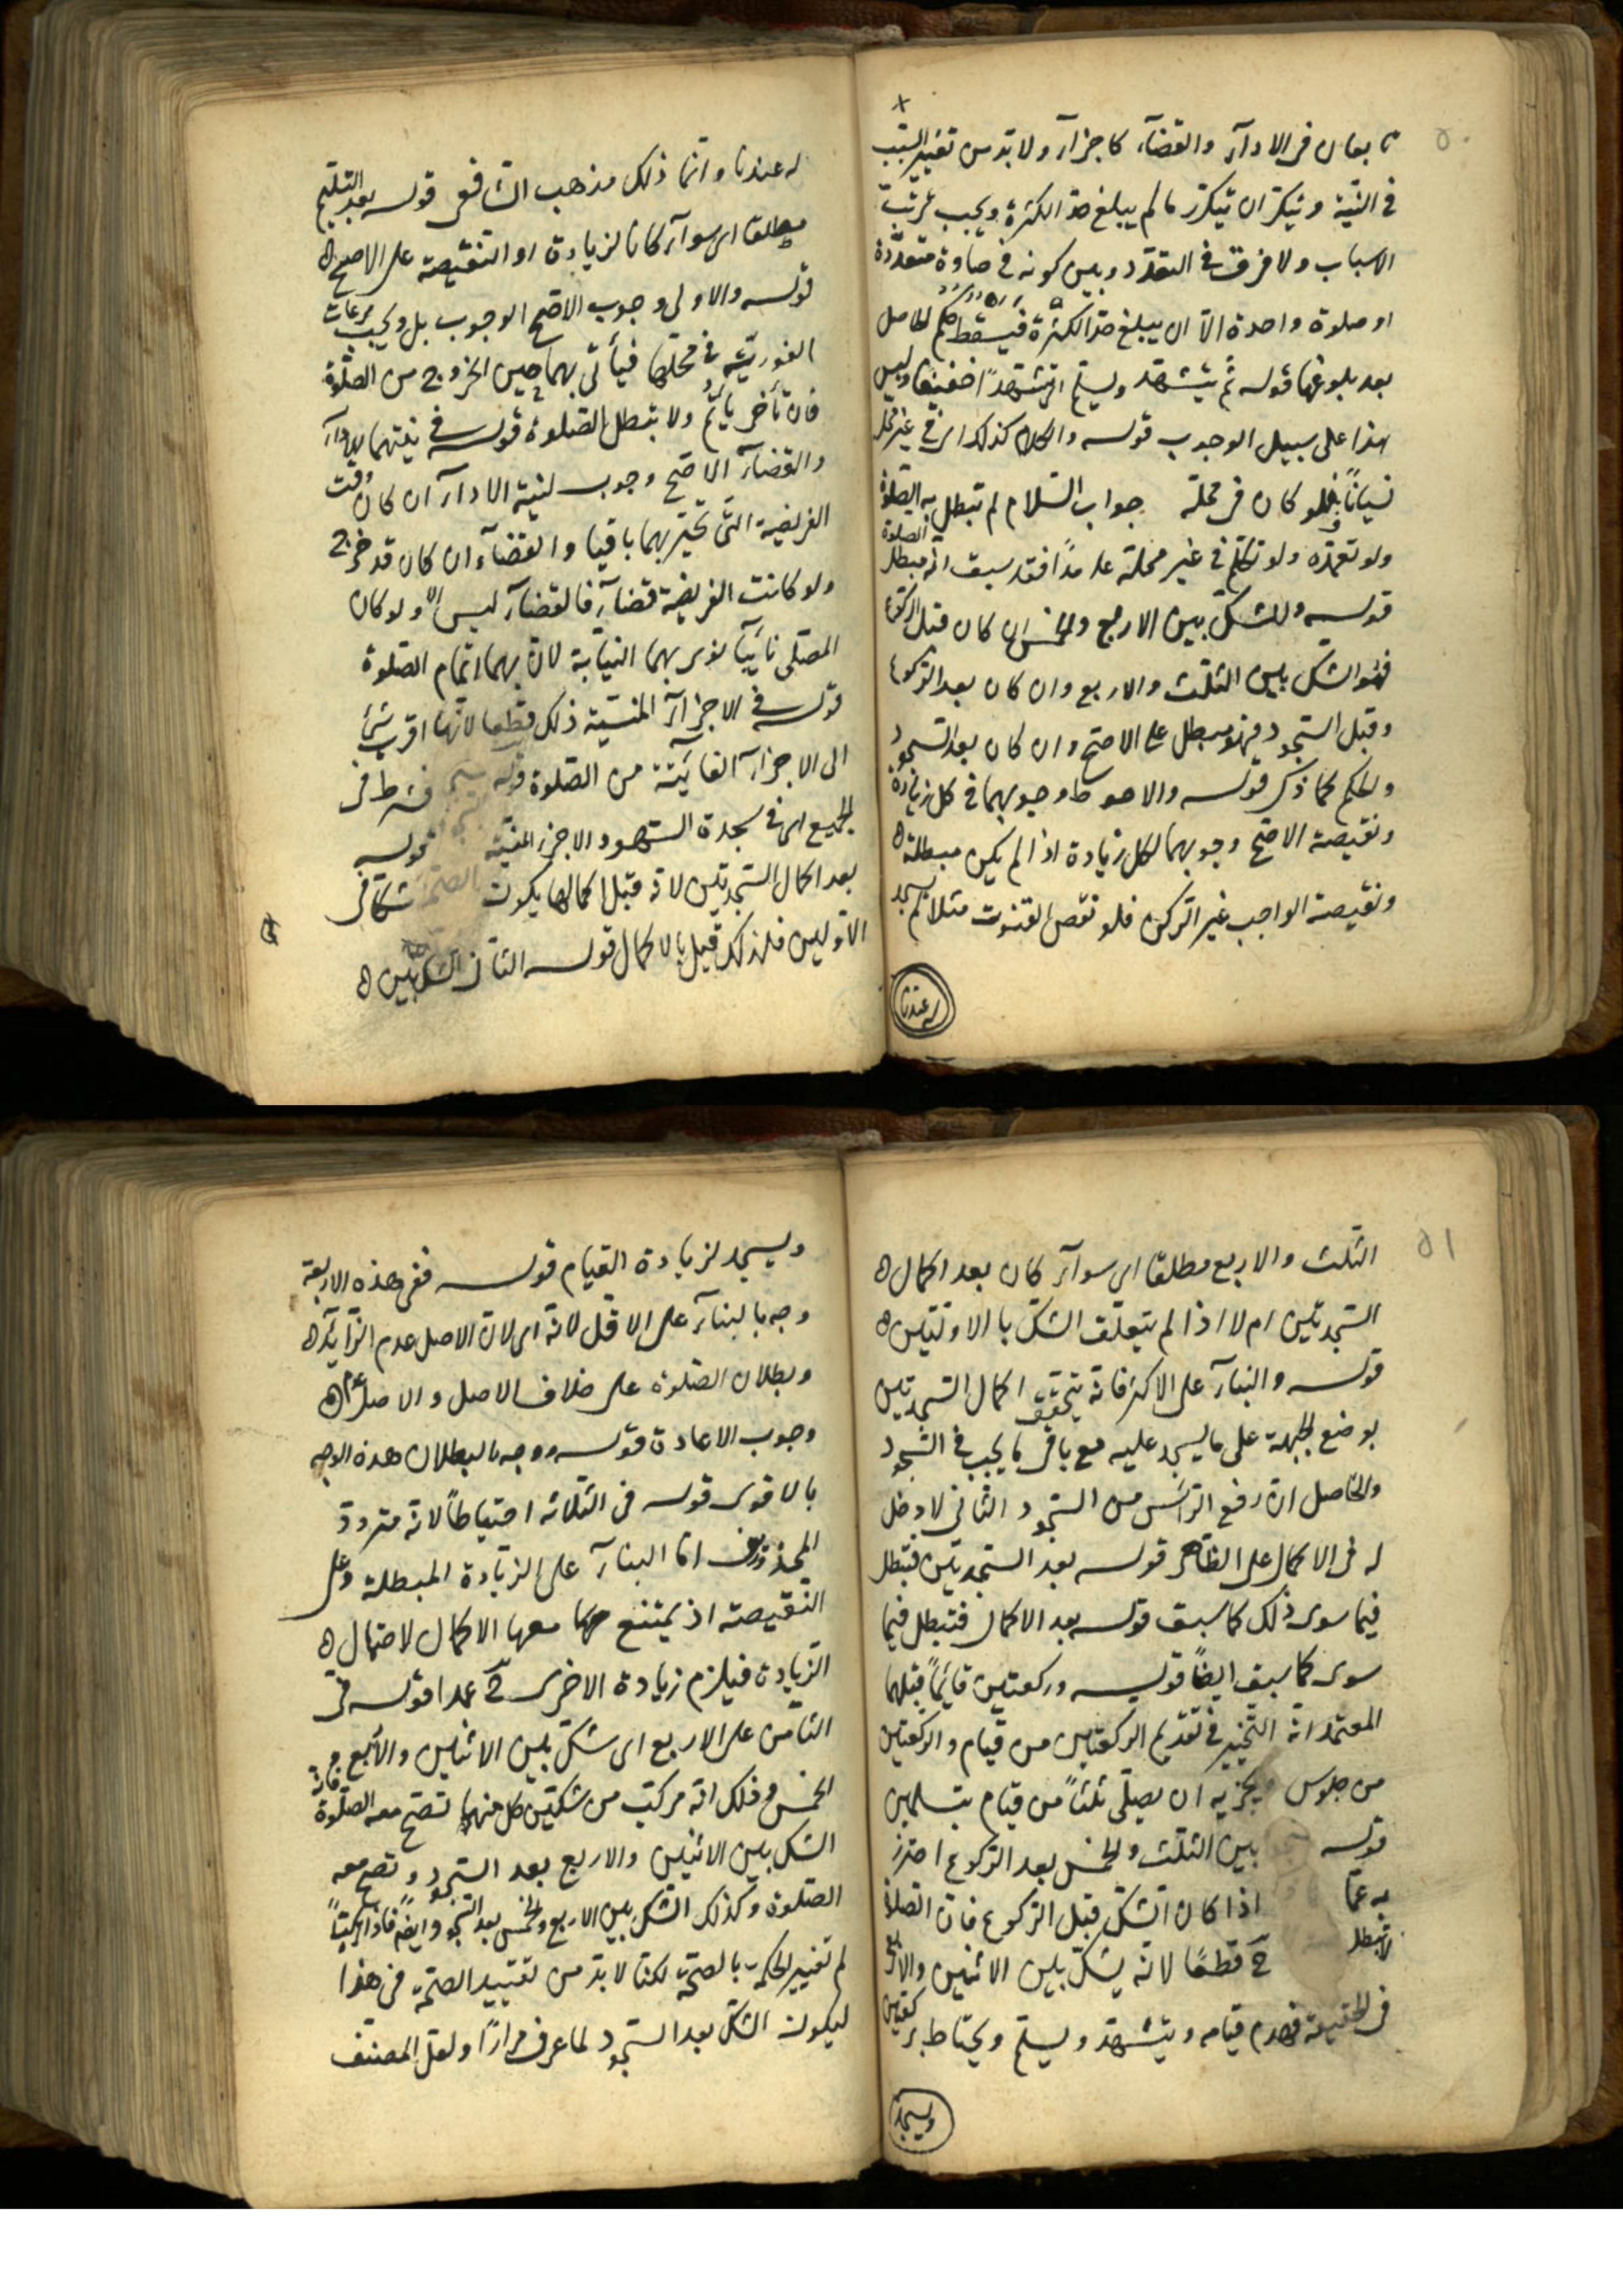 ٥٠
تابعان في الادآء والقضآء كاجزآء ولا بد من تعيين السبب
في النية ويتكرر ان تكرر ما لم يبلغ حد الكثرة ويجب ترتيب
الاسباب ولا فرق في التعدد وبين كونه في صلوة متعددة
او صلوة واحدة الا ان يبلغ حد الكثرة فيسقط حكم الحاصل
بعد بلوغها قوله ثم يتشهد ويسلم اي تشهدا خفيفا وليس
هذا على سبيل الوجوب قوله والكلام كذلك اي في غير محله
نسيانا فلو كان في محله جواب السلام لم تبطل به الصلوة
ولو تعمده ولو تكلم في غير محله عامدا فقد سبق انه مبطل الصلوة
قوله وللشك بين الاربع والخمس ان كان قبل الركوع
فهو الشك بين الثلث والاربع وان كان بعد الركوع
وقبل السجود فهو مبطل على الاصح وان كان بعد السجود
والحكم كما ذكر قوله والاحوط وجوبهما في كل زيادة
ونقيصة الاصح وجوبهما لكل زيادة اذا لم يكن مبطلة
ونقيصة الواجب غير الركن فلو نقص القنوت مثلا لم يسجد
له عندنا
له عندنا وانما ذلك مذهب الشافعي قوله بعد التسليم
مطلقا اي سوآء كانا لزيادة او النقيصة على الاصح
قوله والاولى وجوب الاصح الوجوب بل ويجب مراعات
الفورية في محلها فيأتي بهما حين الخروج من الصلوة
فان تأخر يأثم ولا تبطل الصلوة قوله في نيتهما الادآء
والقضآء الاصح وجوب لنية الادآء ان كان وقت
الفريضة التي تجبر بهما باقيا والقضآء ان كان قد خرج
ولو كانت الفريضة قضآء فالقضآء ليس الا ولو كان
المصلي نائيا نوى بهما النيابة لان بهما اتمام الصلوة
قوله في الاجزآء المنسية ذلك قطعا لانها اقرب شئ
الى الاجزآء الفائتة من الصلوة قوله شرط في
الجميع اي في سجدة السهو والاجزاء المنسية قوله
بعد اكمال السجدتين لانه قبل اكمالها يكون شكا في
الاوليين فلذلك قيل بالاكمال قوله الثاني الشك بين
٥١
الثلث والاربع مطلقا اي سوآء كان بعد اكمال
السجدتين ام لا اذا لم يتعلق الشك بالاولتين
قوله والبنآء على الاكثر فانه يتحقق اكمال السجدتين
بوضع الجبهة على ما يسجد عليه مع باقي ما يجب في السجود
والحاصل ان رفع الرأس من السجود الثاني لا دخل
له في الاكمال على الظاهر قوله بعد السجدتين فتبطل
فيما سوى ذلك كما سبق قوله بعد الاكمال فتبطل فيما
سوى كما سبق ايضا قوله وركعتين قائما قبلهما
المعتمد انه التخيير في تقديم الركعتين من قيام والركعتين
من جلوس ويجزيه ان يصلي ثلثا من قيام بتسلمين
قوله بين الثلث والخمس بعد الركوع احترز
به عما اذا كان الشك قبل الركوع فان الصلوة
لا تبطل ح قطعا لانه يشك بين الاثنين والاربع
في الحقيقة فهدم قيامه ويتشهد ويسلم ويحتاط بركعتين
ويسجد
ويسجد لزيادة القيام قوله ففي هذه الاربعة
وجه بالبنآء على الاقل لانه اي لان الاصل عدم الزايد
وبطلان الصلوة على خلاف الاصل والاصل عدم
وجوب الاعادة قوله ووجه بالبطلان هذه الوجه
بالاقوى قوله في الثلاثة احتياطا لانه متردد
المحذورين اما البنآء على الزيادة المبطلة وعلى
النقيصة اذ يمتنع معها الاكمال لاحتمال
الزيادة فيلزم زيادة الاخرى ح عمدا قوله في
الثامن على الاربع اي شك بين الاثنين والاربع و
الخمس وذلك انه مركب من شكين كل منهما تصح معه الصلوة فان
الشك بين الاثنين والاربع بعد السجود وتصح معه
الصلوة وكذلك الشك بين الاربع والخمس بعد السجود وايضا فاذا تركبا
لم تغيير الحكم بالصحة لكنا لا بد من تقييد الصحة في هذا
ليكون الشك بعد السجود لما عرف مرارا ولعل المصنف